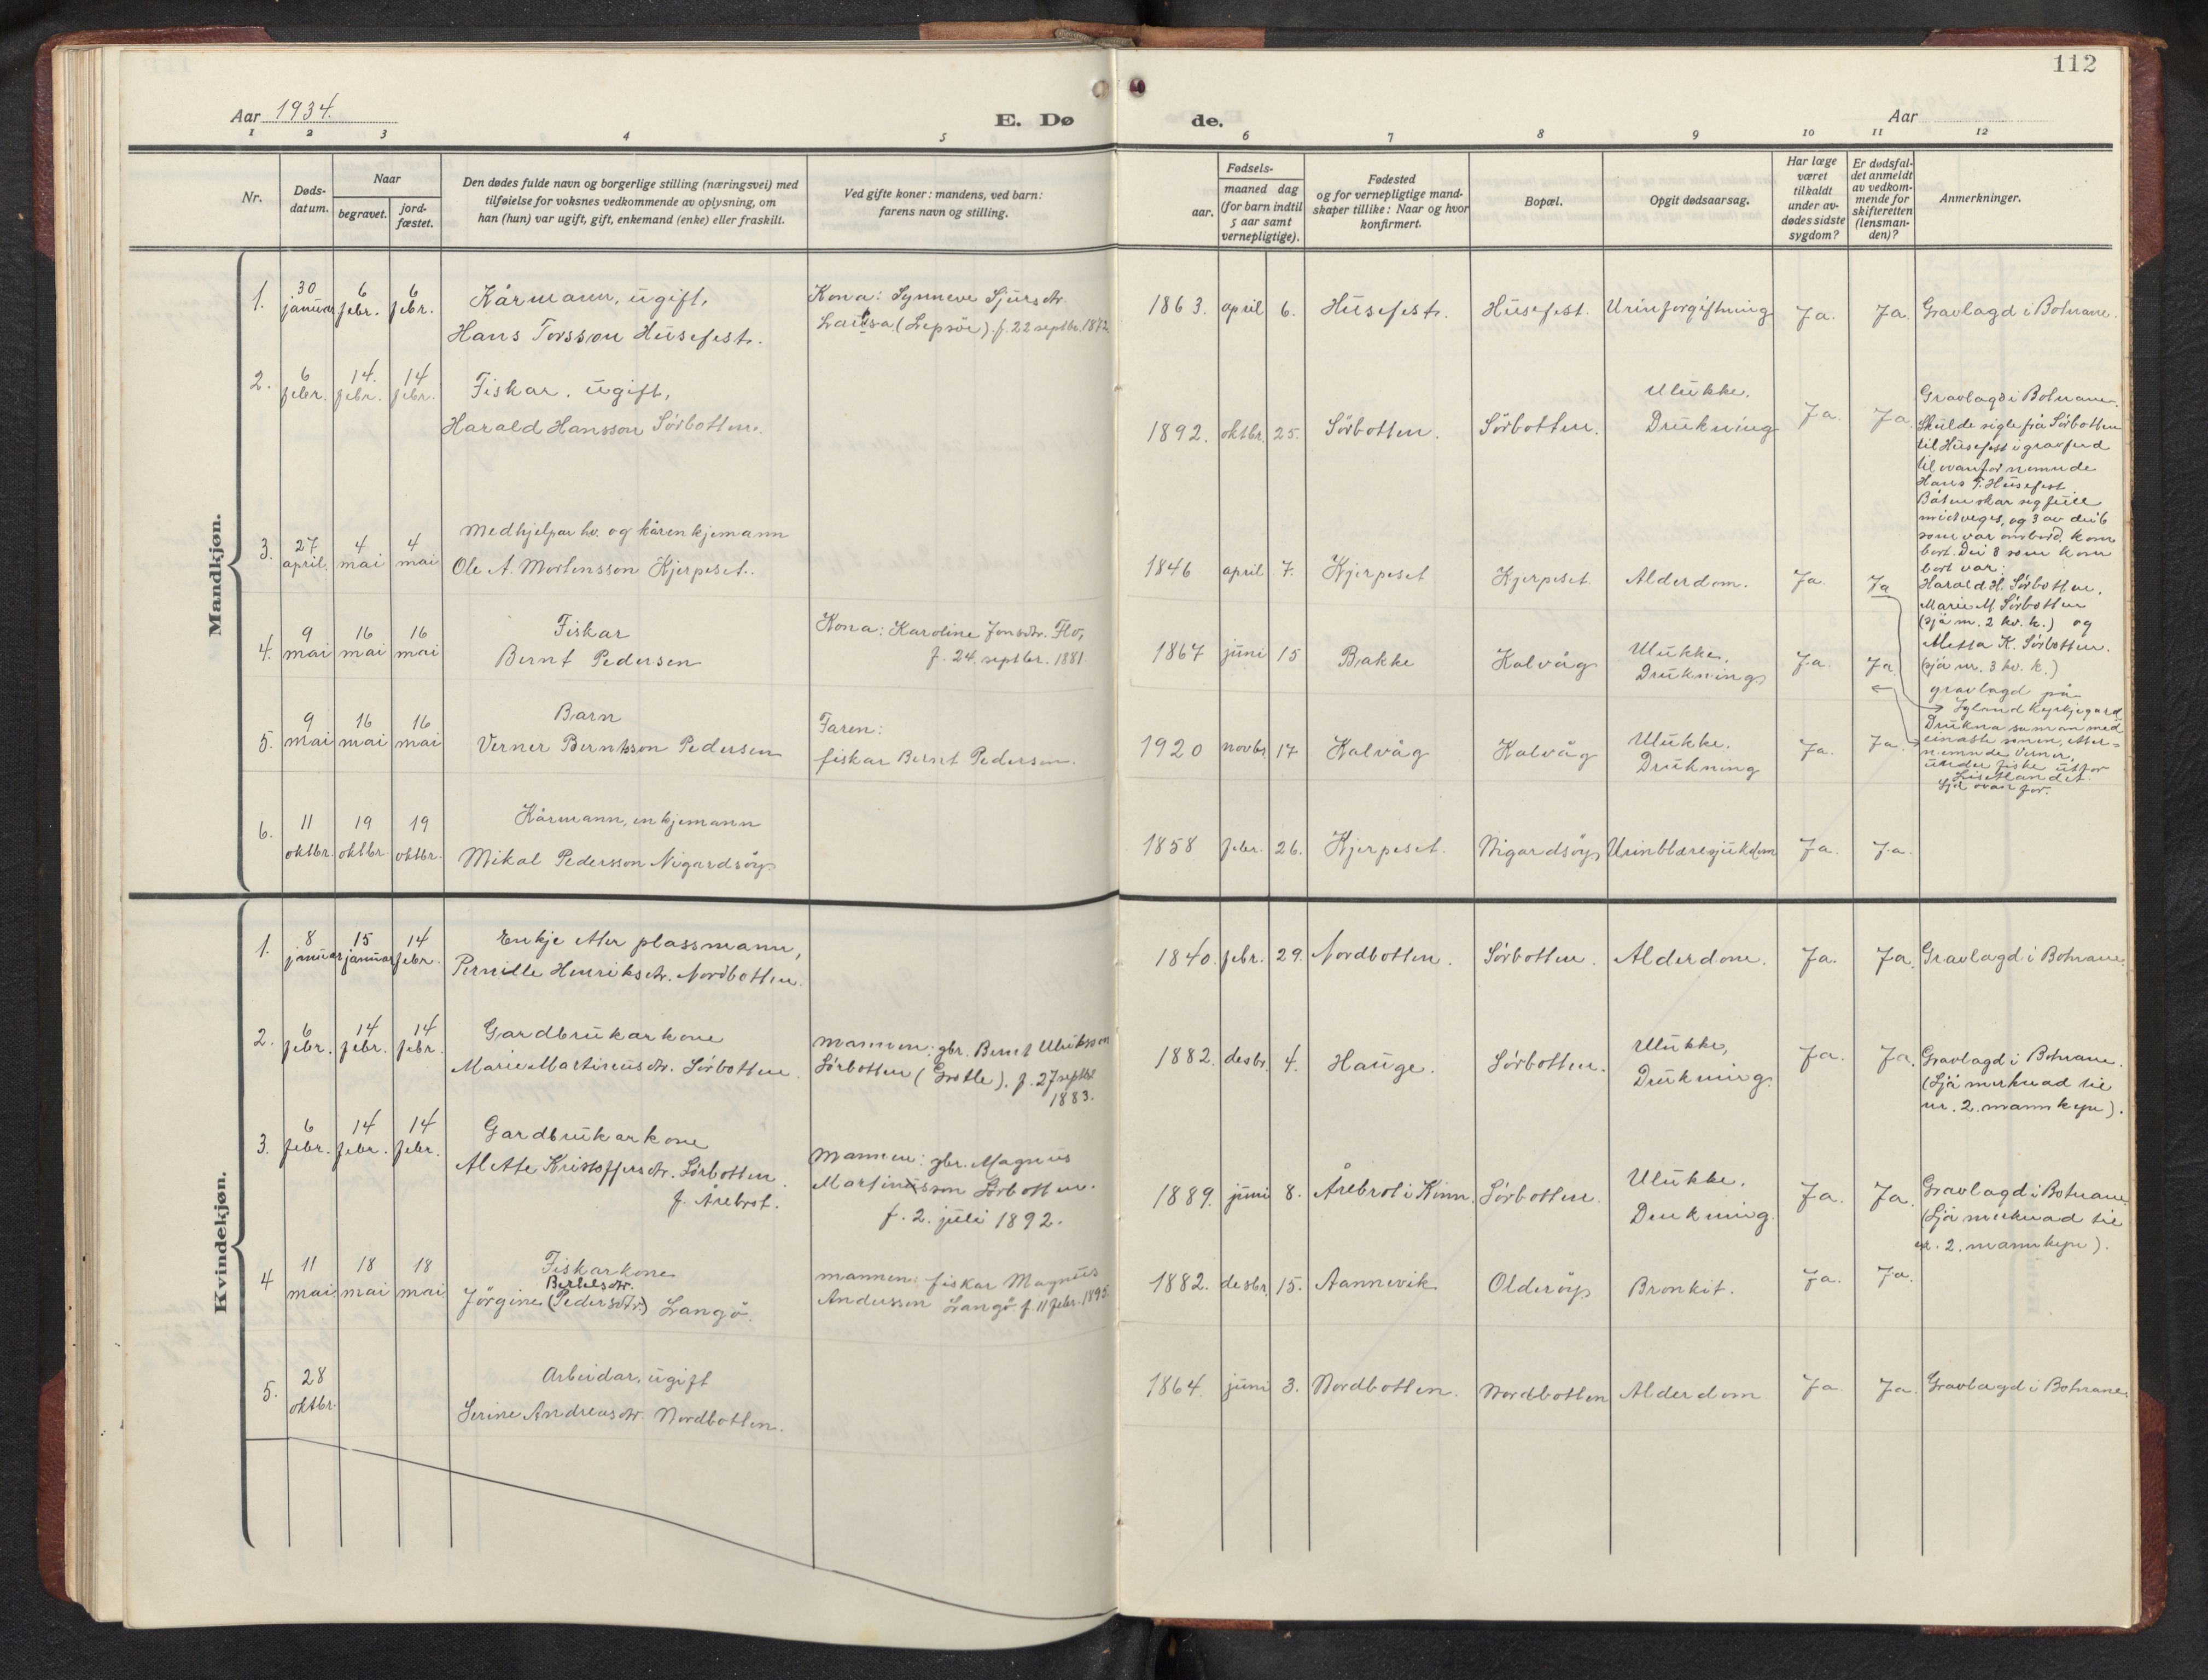 112
Aar 1934.
E. Dø
de.
Aar
1 2 3 4 5
6 7 8 9 10 11 12
Nr.
Døds-
datum.
Naar
begravet.
jord-
fæstet.
Den dødes fulde navn og borgerlige stilling (næringsvei) med
tilføielse for voksnes vedkommende av oplysning, om
han (hun) var ugift, gift, enkemand (enke) eller fraskilt.
Ved gifte koner: mandens, ved barn:
farens navn og stilling.
Fødsels-
aar.
maaned dag
(for barn indtil
5 aar samt
vernepligtige).
Fødested
og for vernepligtige mand-
skaper tillike: Naar og hvor
konfirmert.
Bopæl.
Opgit dødsaarsag.
Har læge
været
tilkaldt
under av-
dødes sidste
sygdom?
Er dødsfal-
det anmeldt
av vedkom-
mende for
skifteretten
(lensman-
den)?
Anmerkninger.
Mandkjøn.
1.
30
januar
6
febr.
6
febr.
Kårmann, ugift,
Hans Torsson Husefest.
Kona: Synneve Sjursdtr.
(Lepsöe) f. 22 septbr. 1872.
1863. april 6. Husefest. Husefest. Urinforgiftning Ja. Ja. Gravlagd i Botnane.
2.
6
febr.
14.
febr.
14
febr.
Fiskar, ugift,
Harald Hansson Sörbotten.
1892. oktbr. 25. Sörbotten. Sörbotten.
Ulukke.
Drukning
Ja. Ja.
Gravlagd i Botnane.
Skulde sigle frå Sörbotten
til Husefest i gravferd
til ovanfor nemnde
Hans T. Husefest.
Båten skar seg full
midtveges, og 3 av dei 6
som var ombord, kom
bort. Dei 8 som kom
bort var:
Harald H. Sörbotten,
Marie M. Sörbotten
(sjå nr. 2 kv. k.) og
Aletta K. Sörbotten.
(sjå nr. 3 kv. k.)
3.
27
april.
4
mai
4
mai
Medhjelpar hv. og kårenkjemann
Ole A. Mortensson Kjerpeset.
1846 april 7. Kjerpeset Kjerpeset. Alderdom. Ja. Ja
gravlagd på
kyrkjegard
4.
9
mai
16
mai
16
mai
Fiskar
Bernt Pedersen
Kona: Karoline Jonsdtr. Flo,
f. 24. septbr. 1881
1867 juni 15 Bakke Kalvåg
Ulukke.
Drukning
Ja. Ja
Drukna saman med
einaste sonen, etter-
nemnde Verner,
under fiske utfor
5.
9
mai
16
mai
16
mai
Barn
Verner Berntsson Pedersen
Faren:
fiskar Bernt Pedersen.
1920 novbr. 17 Kalvåg Kalvåg
Ulukke.
Drukning
Ja. Ja.
Sjå ovanfor.
6.
11
oktbr.
19
oktbr.
19
oktbr.
Kårmann, enkjemann
Mikal Pedersson Nigardsöy
1858 febr. 26. Kjerpeset. Nigardsöy Urinblæresjukdom Ja. Ja.
Kvindekjøn.
1.
8
januar
15
januar
14
febr.
Enkje etter plassmann,
Pernille Henriksdtr. Nordbotten.
1840. febr. 29. Nordbotten. Sörbotten. Alderdom. Ja. Ja. Gravlagd i Botnane.
2.
6
febr.
14
febr.
14
febr.
Gardbrukarkone
Marie Martinusdtr. Sörbotten.
Mannen: gbr. Bernt Ulriksson
Sörbotten (Grotle). f. 27 septbr.
1883.
1882. desbr. 4. Hauge. Sörbotten.
Ulukke,
Drukning.
Ja. Ja.
Gravlagd i Botnane.
(Sjå merknad til
nr. 2. mannkyn).
3.
6
febr.
14
febr.
14
febr.
Gardbrukarkone
Alette Kristoffersdtr. Sörbotten.
f. Årebrot.
Mannen: gbr. Magnus
Martinusson Sörbotten.
f. 2. juli 1892.
1889. juni 8. Årebrot i Kinn. Sörbotten.
Ulukke.
Drukning.
Ja. Ja.
Gravlagd i Botnane
(Sjå merknad til
nr. 2. mannkyn).
4
11
mai
18
mai
18
mai
Fiskarkone
Bertelsdtr.
Jörgine (Pedersdtr.) Langö.
Mannen: fiskar Magnus
Andersson Langö f. 11 febr. 1895.
1882. desbr. 15. Aannevik Olderöy Bronkit. Ja. Ja.
5.
28
oktbr.
Arbeidar, ugift
Serine Andreasdtr. Nordbotten.
1864. juni 3. Nordbotten. Nordbotten Alderdom Ja. Ja. Gravlagd i Botnane